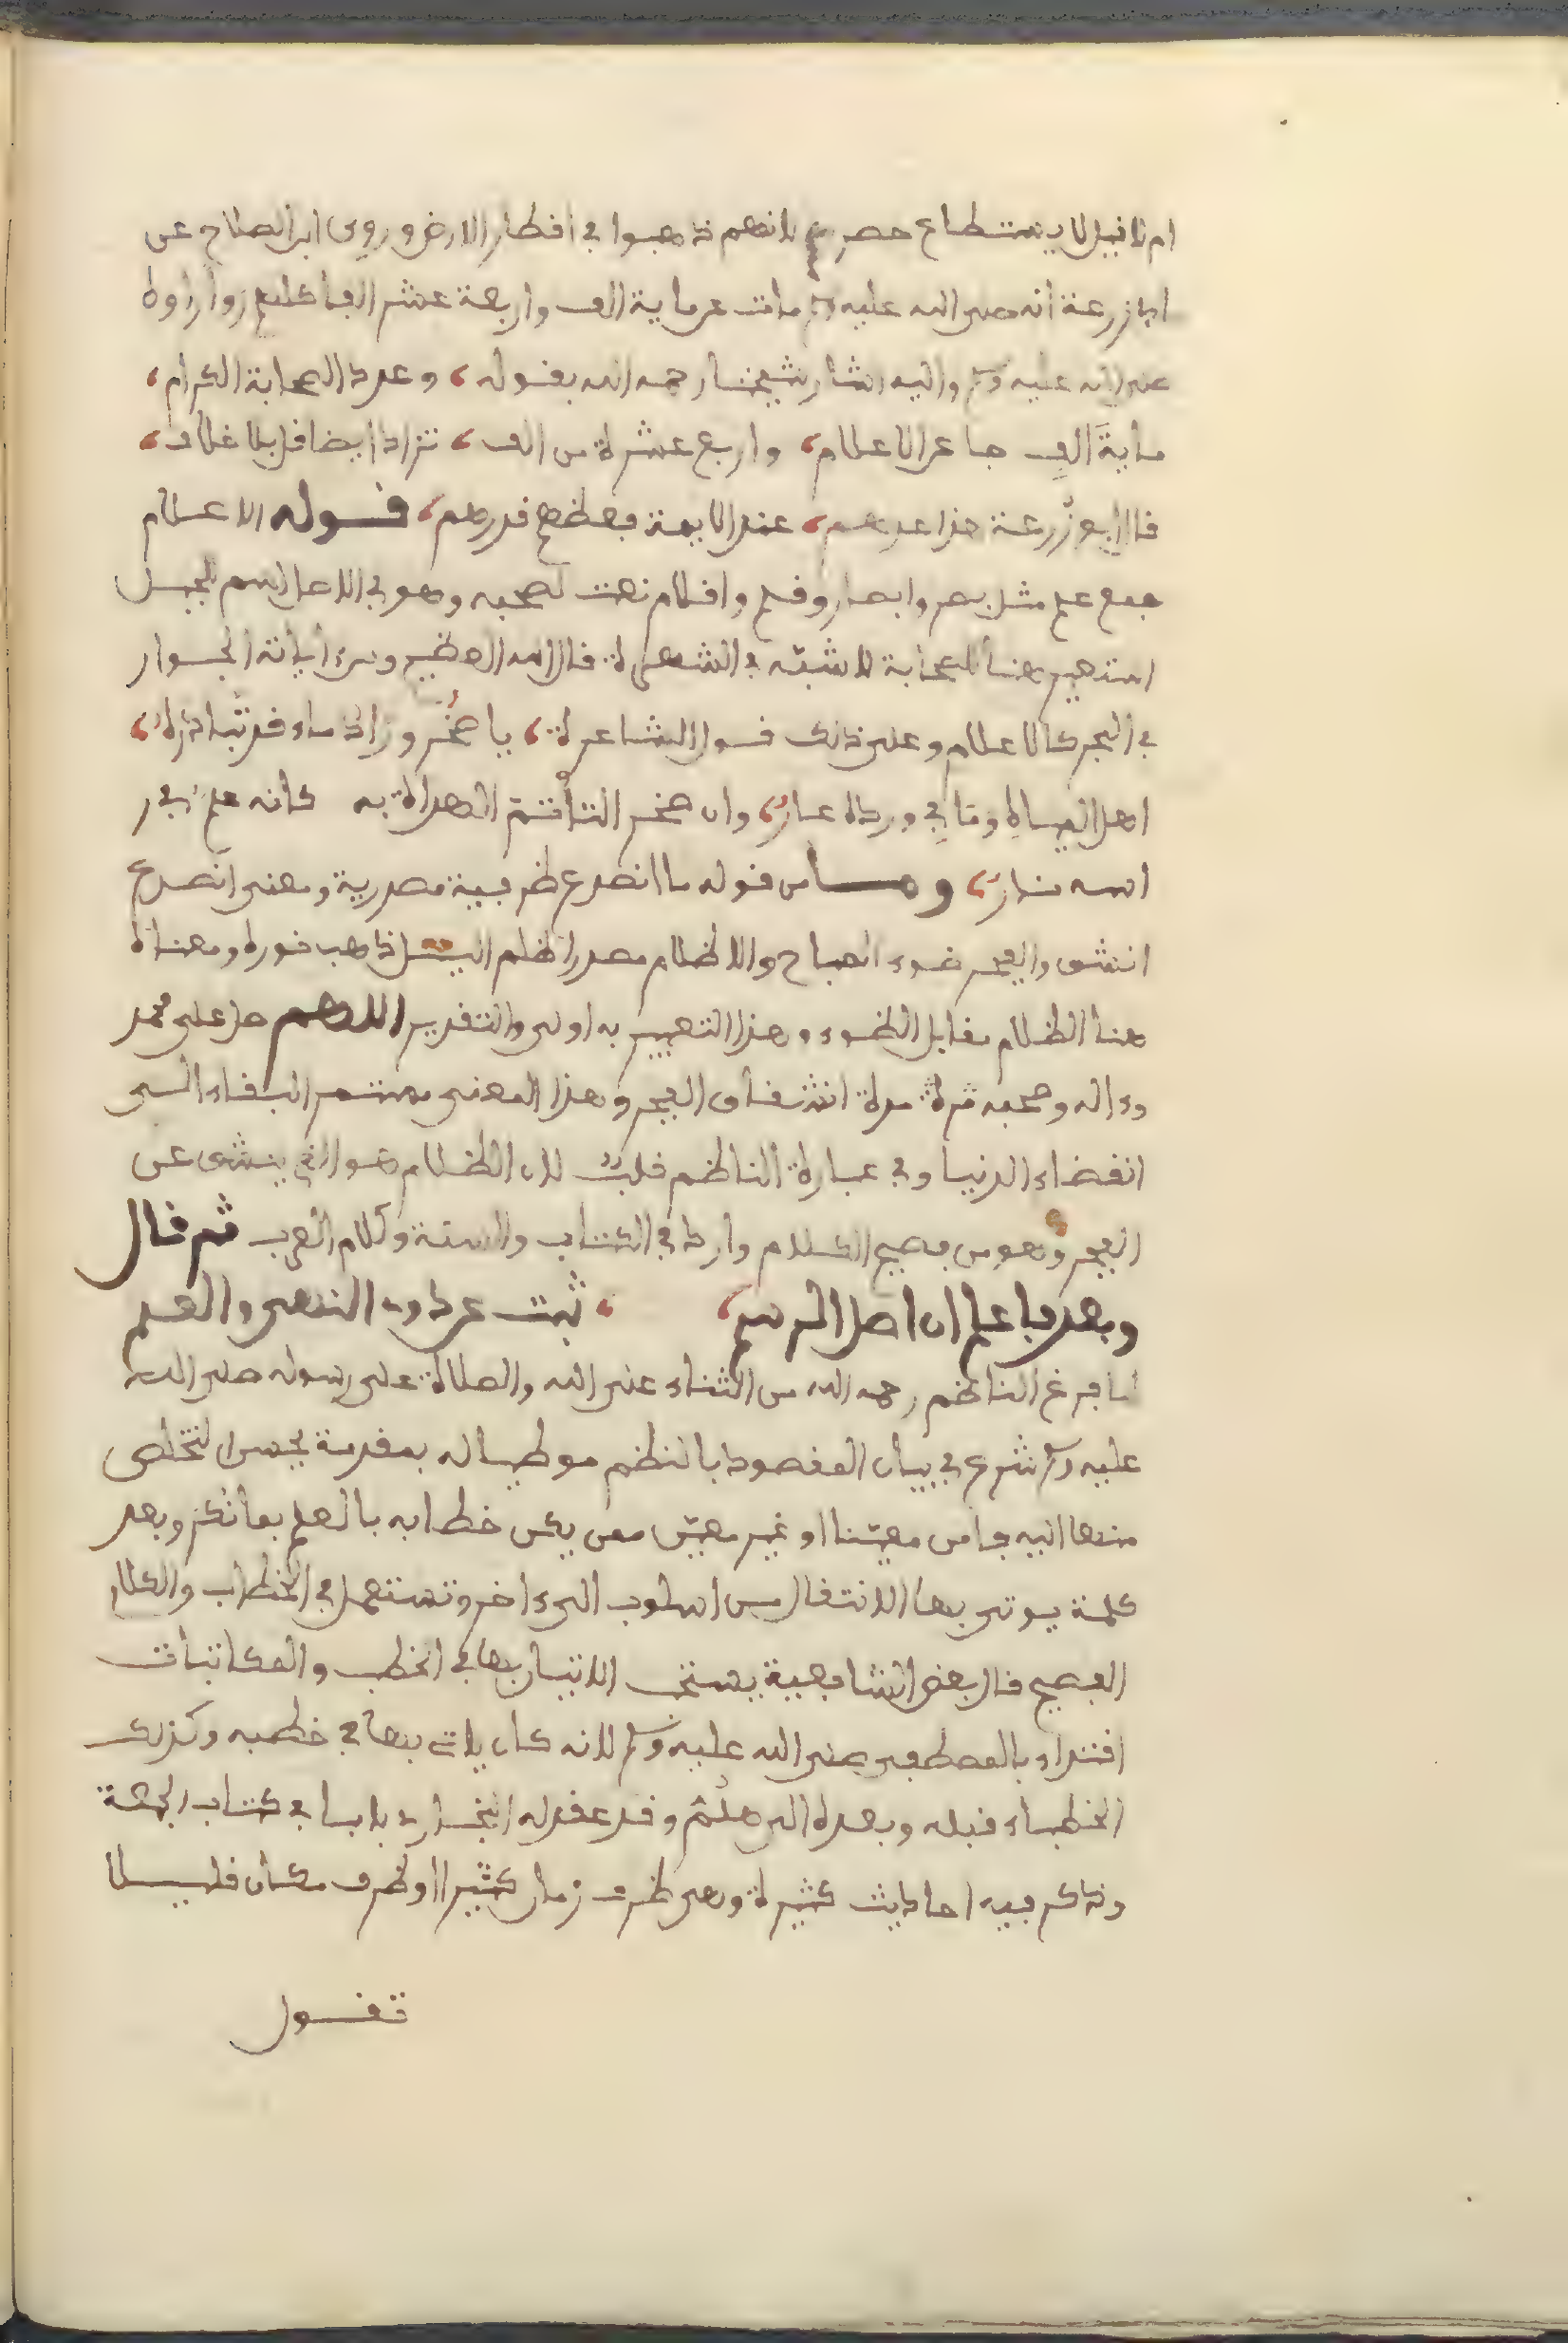 ام لا فيل لا يستطاع حصرهم لانهم ذهبوا في افطار الارض وروى ابن الصلاح عن
ابي زرعة انه صلى الله عليه وسلم مات عن ماية الف واربعة عشر الفا كلهم زوار راوه
عنه صلى الله عليه وسلم واليه اشار شيخنا رحمه الله بفوله، وعدد الصحابة الكرام،
ماية الف جا عن الاعلام، واربع عشرة من الف، تزاد ايضا فل بلا خلاف،
فال ابو زرعة هذا عدهم، عند الايمة فعظم فدرهم، فوله الاعلام
جمع علم مثل بصر وابصار وفلم وافلام نعت لصحبه وهو في الاصل اسم للجبل
استعير هنا للصحابة للشبه في الشهرة فال الله العظيم ومن اياته الجوار
في البحر كالاعلام وعلى ذلك فول الشاعرة، يا صخر وراد ماء فد تبادره،
اهل المياه وما في ورده عار، وان صخر التاتم الهداة به كانه علم في ر
اسه نار، وما من فوله ما انصدع ظرفية مصدرية ومعنى انصدع
انشق والفجر ضوء الصباح والاظلام مصدر اظلم اليل ذهب نوره ومعناه
هنا الظلام مفابل الضوء وهذا التعبير به اولى والتفدير اللهم صل على محمد
وءاله وصحبه مدة مدة انشفاق الفجر وهذا المعنى مستمر البفاء الى
انفضاء الدنيا وفي عبارة الناظم فلب لان الظلام هو الذي ينشق عن
الفجر وهو من فصيح الكلام وارد في الكتاب والسنة وكلام العرب ثم فال
وبعد فاعلم ان اصل الرسم، ، ثبت عن ذوى النهى والعلم
لما فرغ الناظم رحمه الله من الثناء على الله والصلاة على رسوله صلى الله
عليه وسلم شرع في بيان المفصود بالنظم موطيا له بمفدمة يحسن التخلص
منها اليه فامر معينا او غير معين ممن يمكن خطابه بالعلم بما ذكر وبعد
كلمة يوتى بها للانتفال من اسلوب الى ءاخر وتستعمل في الخطاب والكلام
الفصيح فال بعض الشافعية يستحب الاتيان بها في الخطب والمكاتبات
افتداء بالمصطفى صلى الله عليه وسلم لانه كان ياتي بها في خطبه وكذلك
الخطباء فبله وبعده الى هلم وفد عفد له البخارى بابا في كتاب الجمعة
وذكر فيه احاديث كثيرة وهى ظرف زمان كثيرا او ظرف مكان فليلا
تفول